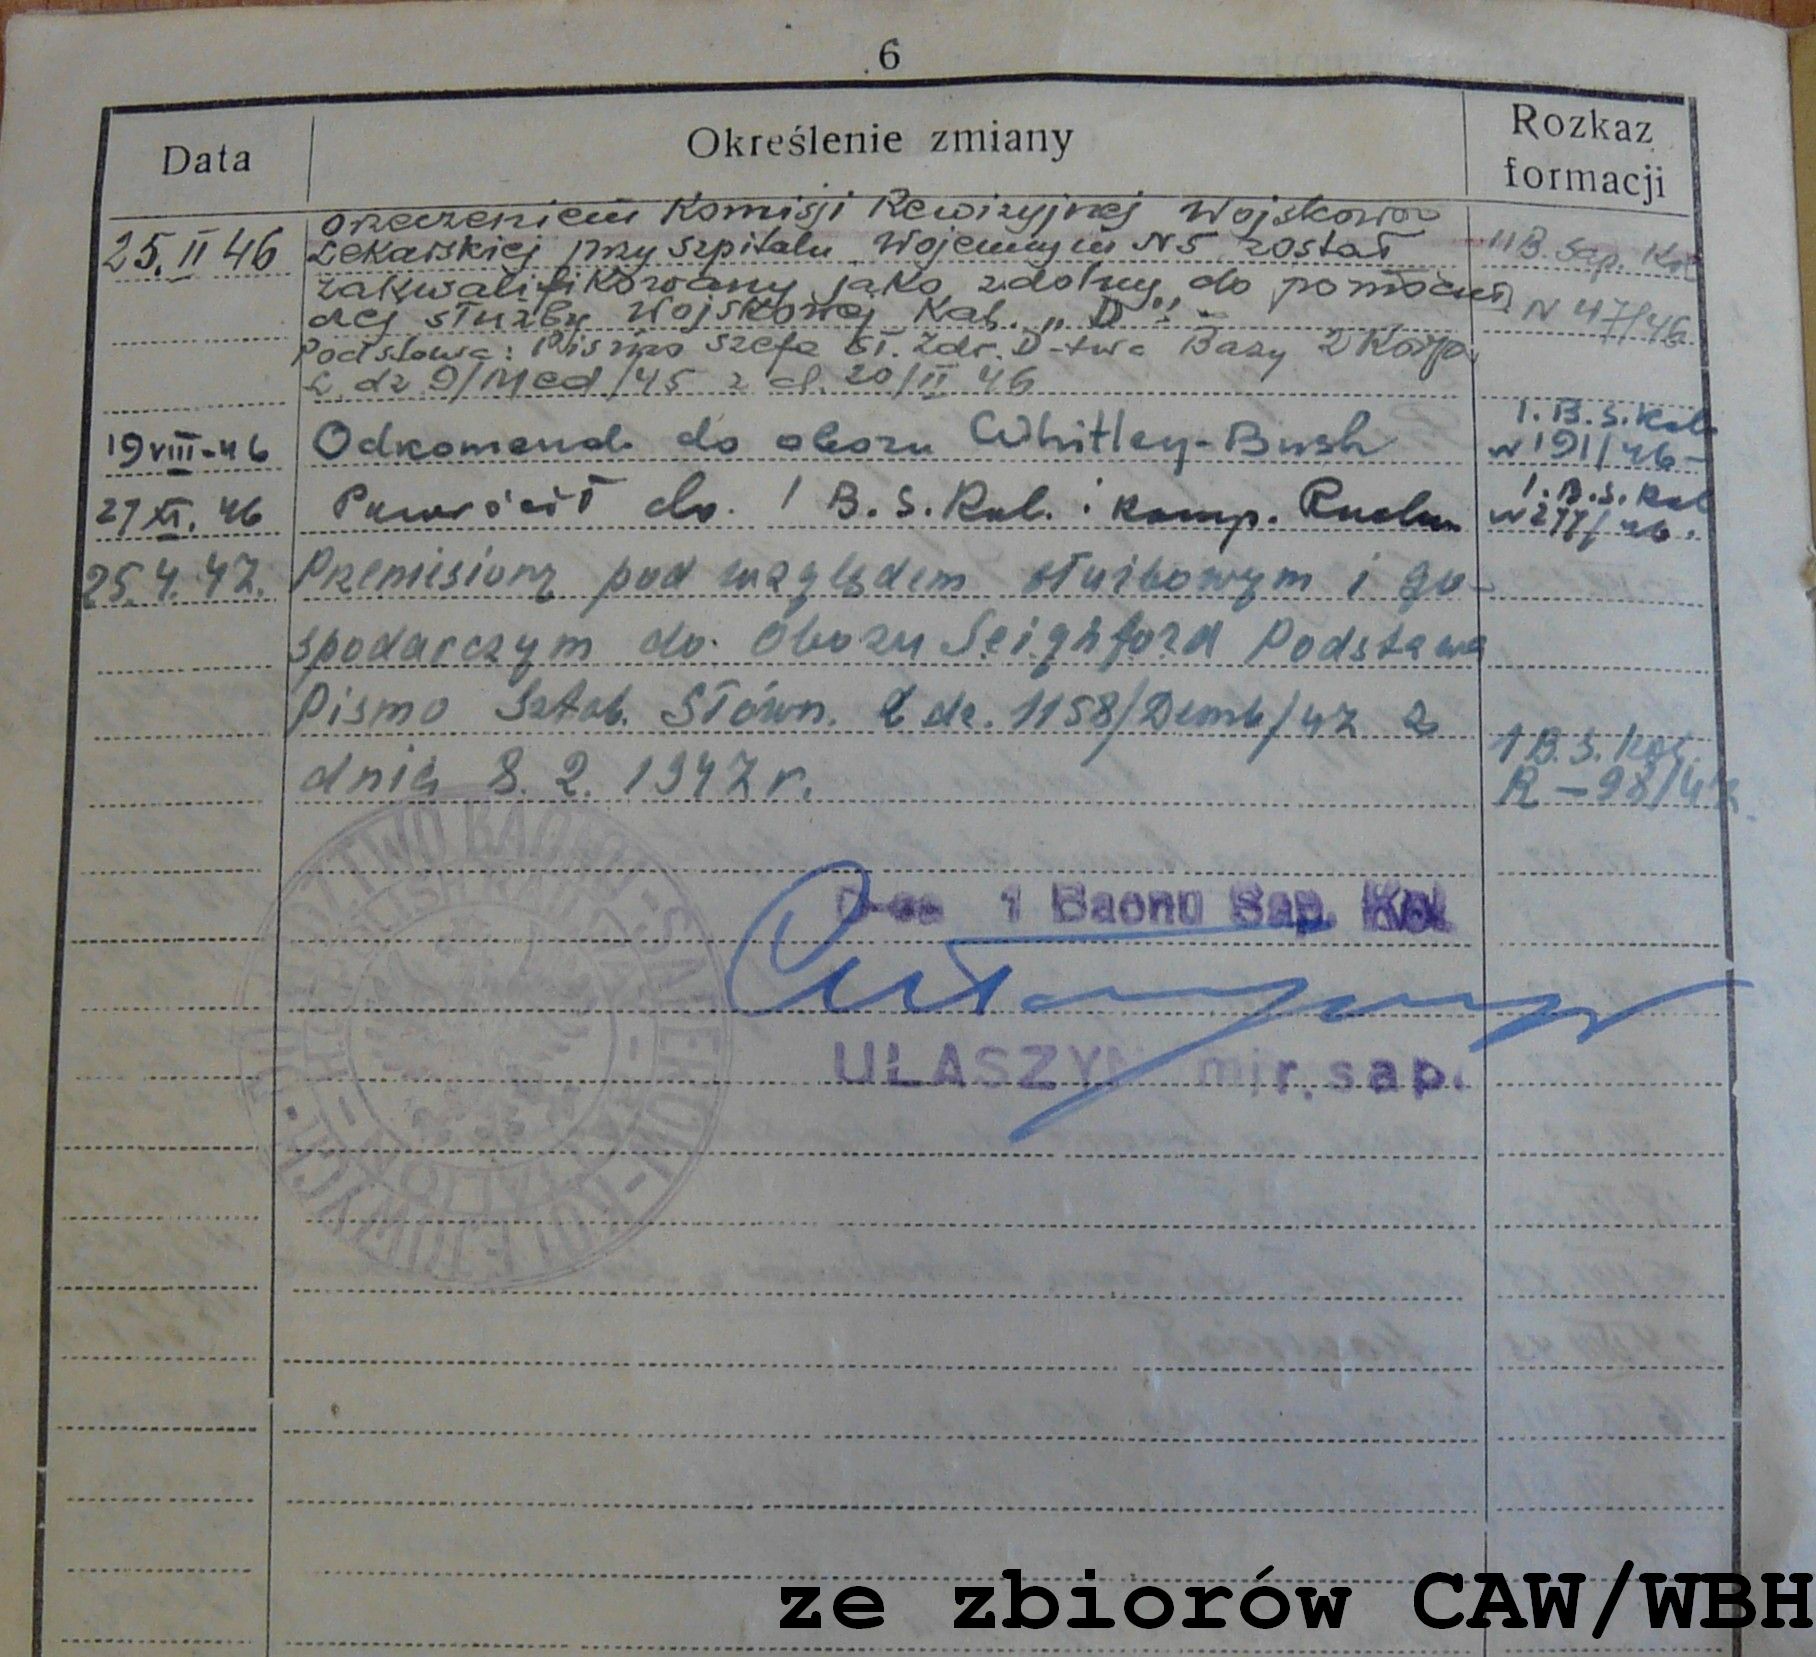 6
Data
Określenie zmiany
Rozkaz
formacji
orzeczeniem Komisji Rewizyjnej Wojskowo
25. II 46 Lekarskiej przy szpitalu Wojennym N5 został 11 B. Sap. Kol
zakwalifikowany jako zdolny do pomocni N 47/46
czej służby Wojskowej Kat. „D".-
Podstawa: Pismo Szefa Sł. Zdr. D-twa Bazy 2 Korp.
L. dz 9/Med/45 z d. 20/II 46
19 VIII-46 Odkomend. do obozu Whitley-Bush 1. B. S. Kol.
N 191/46-
27 XI. 46 Powrócił do 1 B. S. Kol. i komp. Ruchu 1. B. S. Kol
N 277/46.
25.4.47. Przeniesiony pod względem służbowym i go-
spodarczym do Obozu Seighford Podstawa
Pismo Sztab. Główn. L dz. 1158/Demb/47 z
dnia 8. 2. 1947 r. 1 B. S. Kol.
R - 98/47
D-ca 1 Baonu Sap. Kol
UŁASZYN mjr. sap.
ze zbiorów CAW/WBH